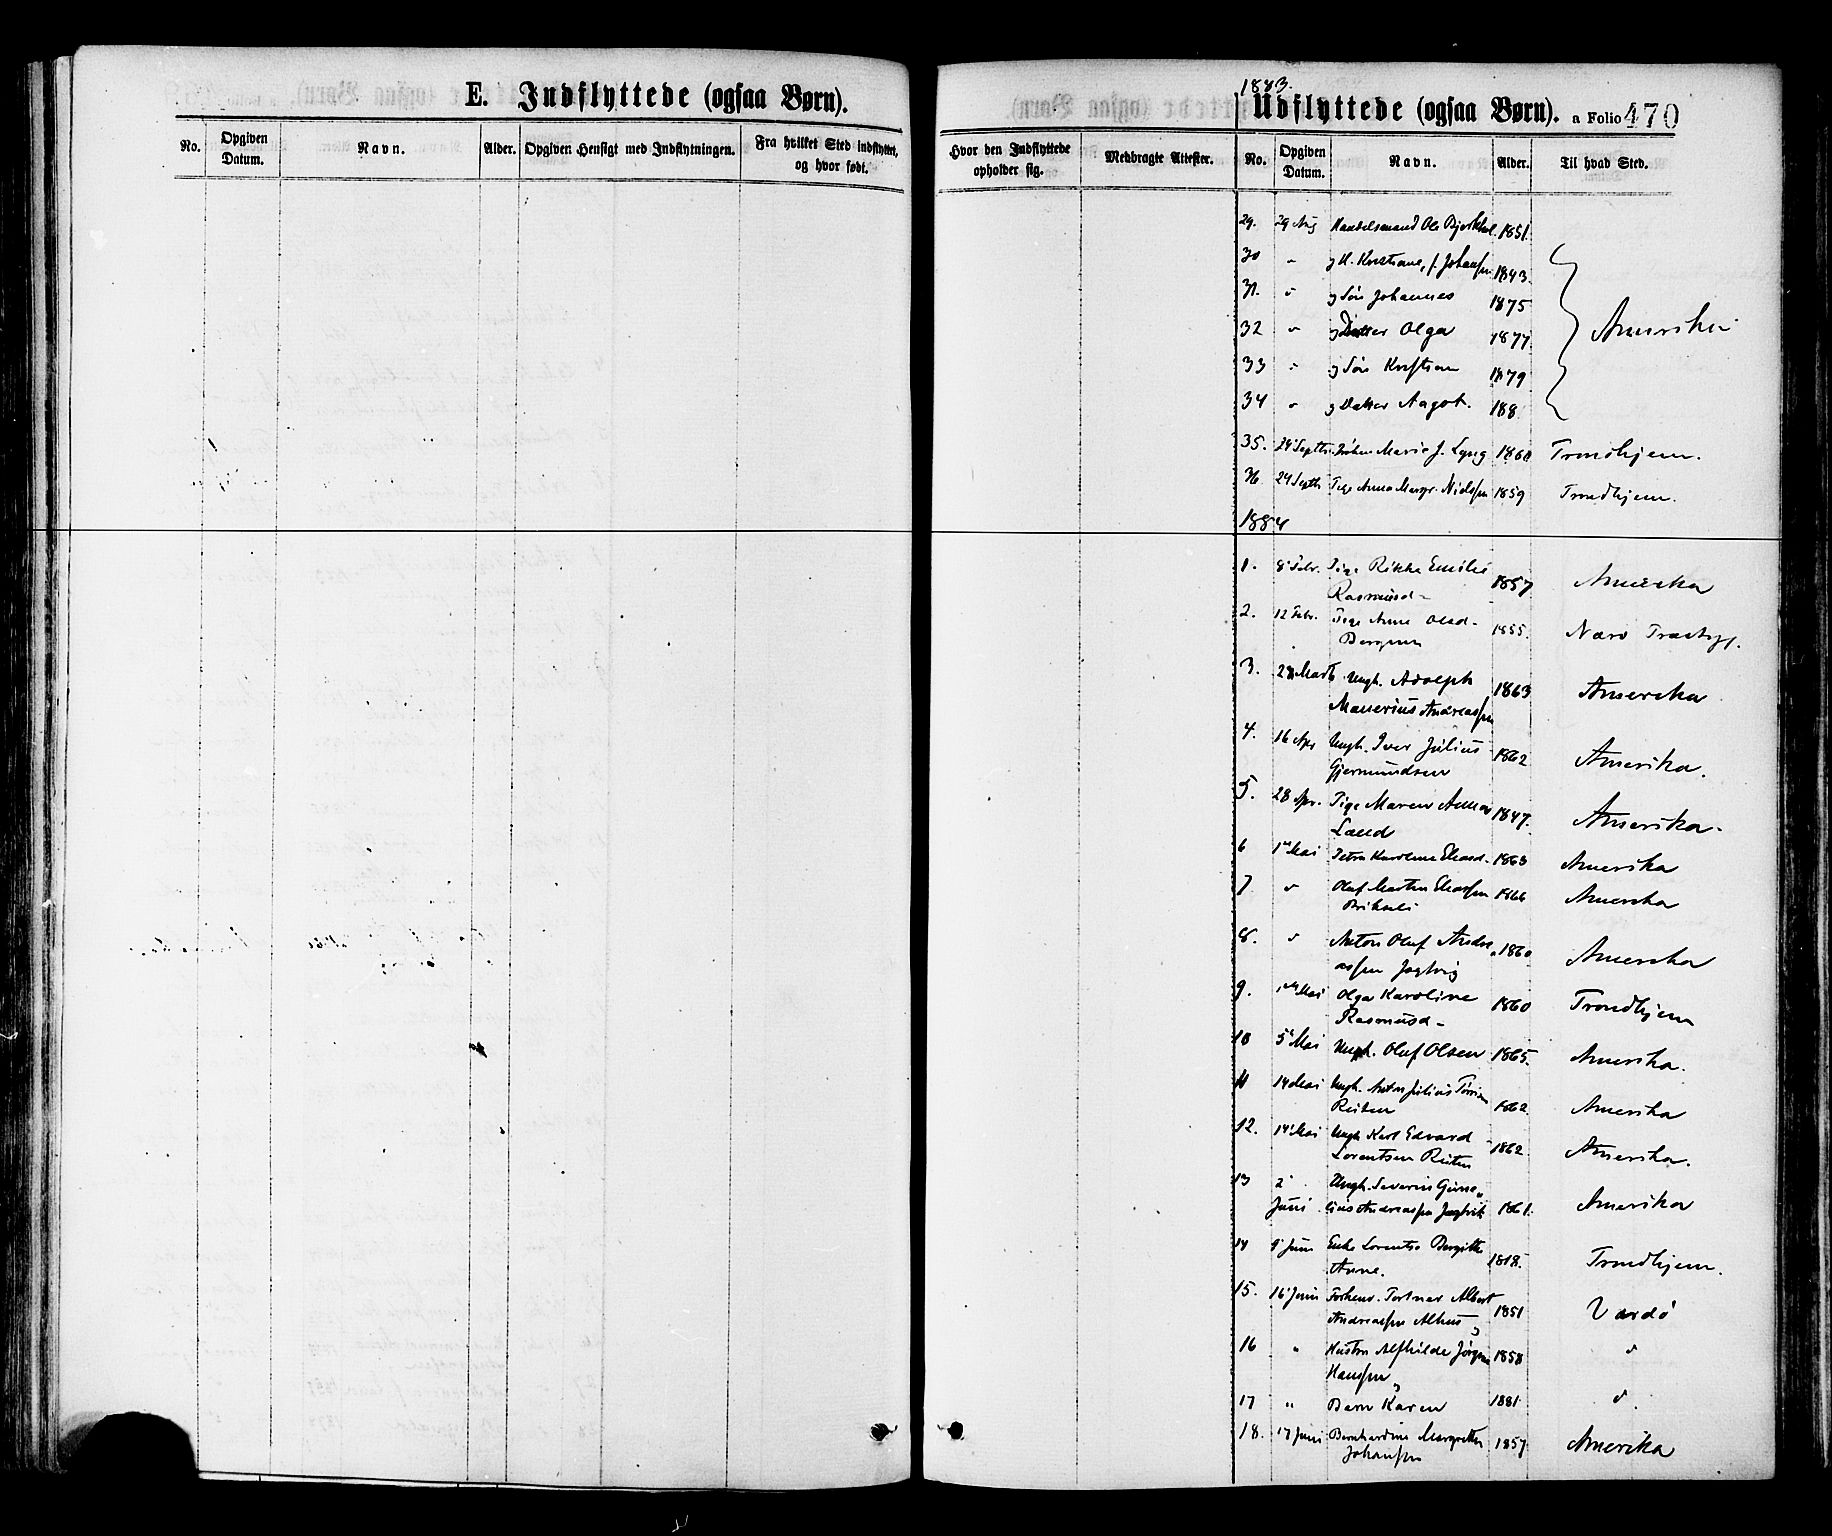 E. Indflyttede (ogsaa Børn).
No.
Opgiven Datum.
Navn.
Alder.
Opgiven Hensigt med Indflytningen.
Fra hvilket Sted indflyttet, og hvor født.
1883.
Udflyttede (ogsaa Børn). a Folio 470
Hvor den Indflyttede opholder sig.
Medbragte Attester.
No.
Opgiven Datum.
Navn.
Alder.
Til hvad Sted.
29. 29 Aug Handelsmand Ole 1851.
30 " og H. Kristiane, f. Johansen 1843.
31. " og Søn Johannes 1875
32 " og Datter Olga 1877 Amerika
33 " og Søn Kristian 1879
34 " og Datter Aagot. 188
35. 24 Septbr. Marie J. Lyng 1860 Trondhjem.
36 24 Septb Pige Anna Margr. Nielsen 1859 Trondhjem.
1884
1. 8 Febr. Pige Rikke Emilie 1857 Amerika
Rasmusd-
2. 12 Febr. Pige Anne Olsd- 1855. Nærø
3. Marts Ungk. Adolph 1863 Amerika
Andreassen
4. 16 Apr Ungk. Iver Julius 1862 Amerika.
Gjermundsen
5. 28 Apr. Pige Maren Anna 1847. Amerika.
Land
6 1 Mai Petra Karoline Eliasd- 1863 Amerika
7. " Oluf Martin Eliassen 1866 Amerika
8. " Anton Oluf Andre 1860 Amerika
assen Jægtvig
9. 1 Mai Olga Karoline 1860 Trondhjem
Rasmusd-
10 5 Mai Ungk. Oluf Olsen 1865. Amerika.
11 14 Mai Ungk. Anton Julius 1862. Amerika
12. 14 Mai Ungk Karl Edvard 1862. Amerika.
Lorentsen
13 2 Ungk. Severin
Juni Andreassen Jægtvik 1861. Amerika
14 9 Juni Enke Lorentse Bergitte 1818. Trondhjem.
Anne.
15. 16 Juni Forhenv. Portner Albert 1851 Vardø
Andreassen
16 " Hustru Alfhilde Jørgine 1858 "
Hansen
17 " Barn Karen 1881 "
18. 17 Juni Bernhardine Margrethe 1857 Amerika
Johansen